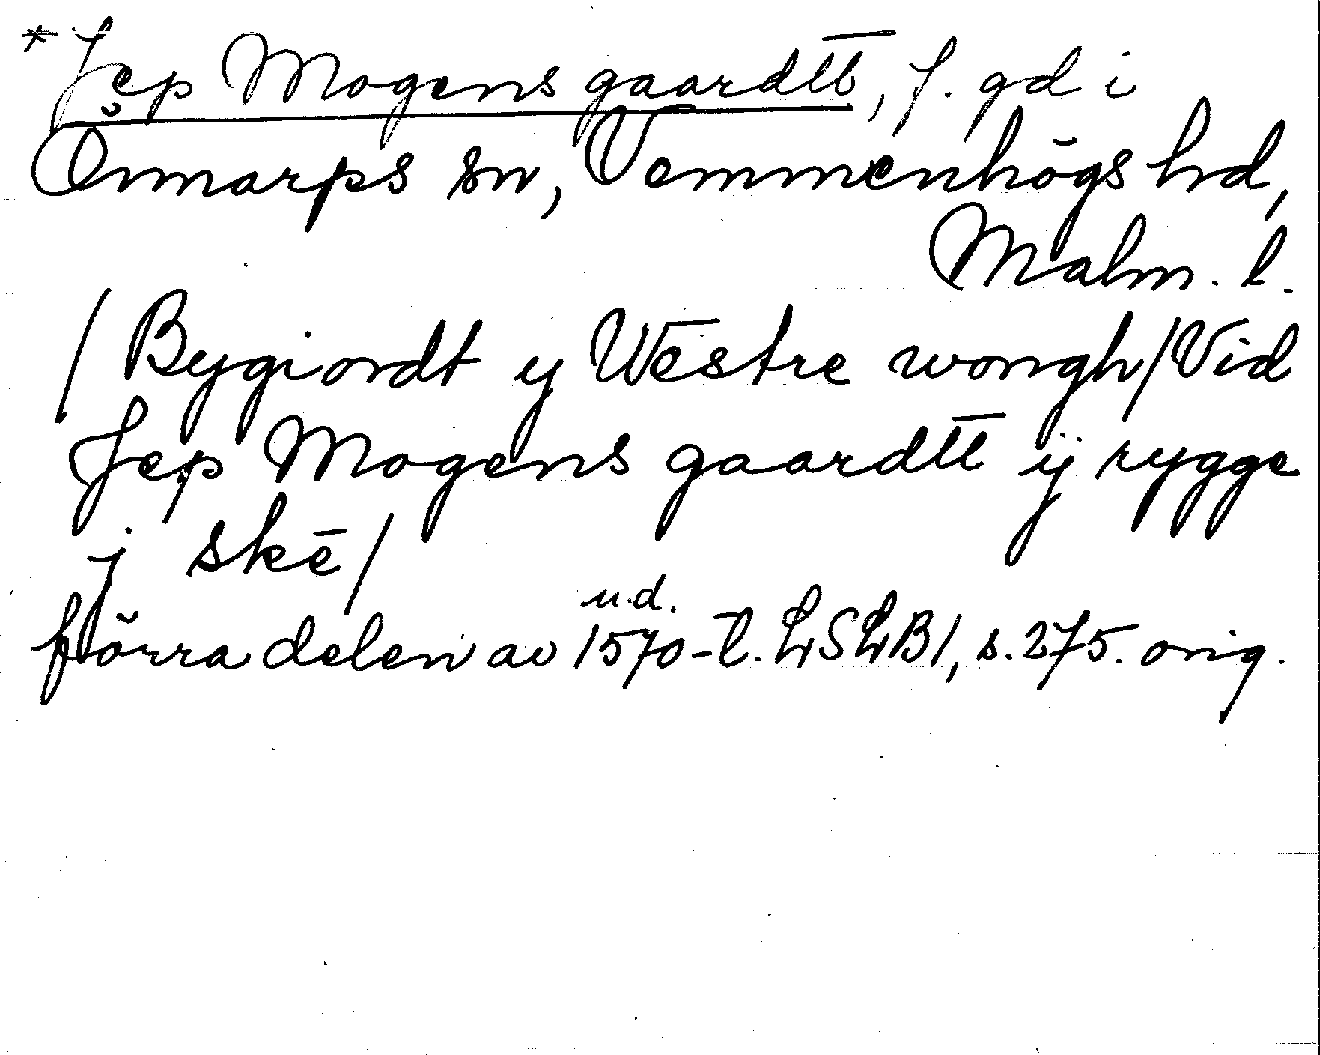 * Jep Mogens gaardtt, f. gd i
Önnarps sn, Vemmenhögs hd,
Malm. l.
/ Bygiordt y Westre wongh / Vid
Jep Mogens gaardtt ij rygge
j skē /
u.d.
förra delen av 1570-t. LSLB1, s. 275. orig.